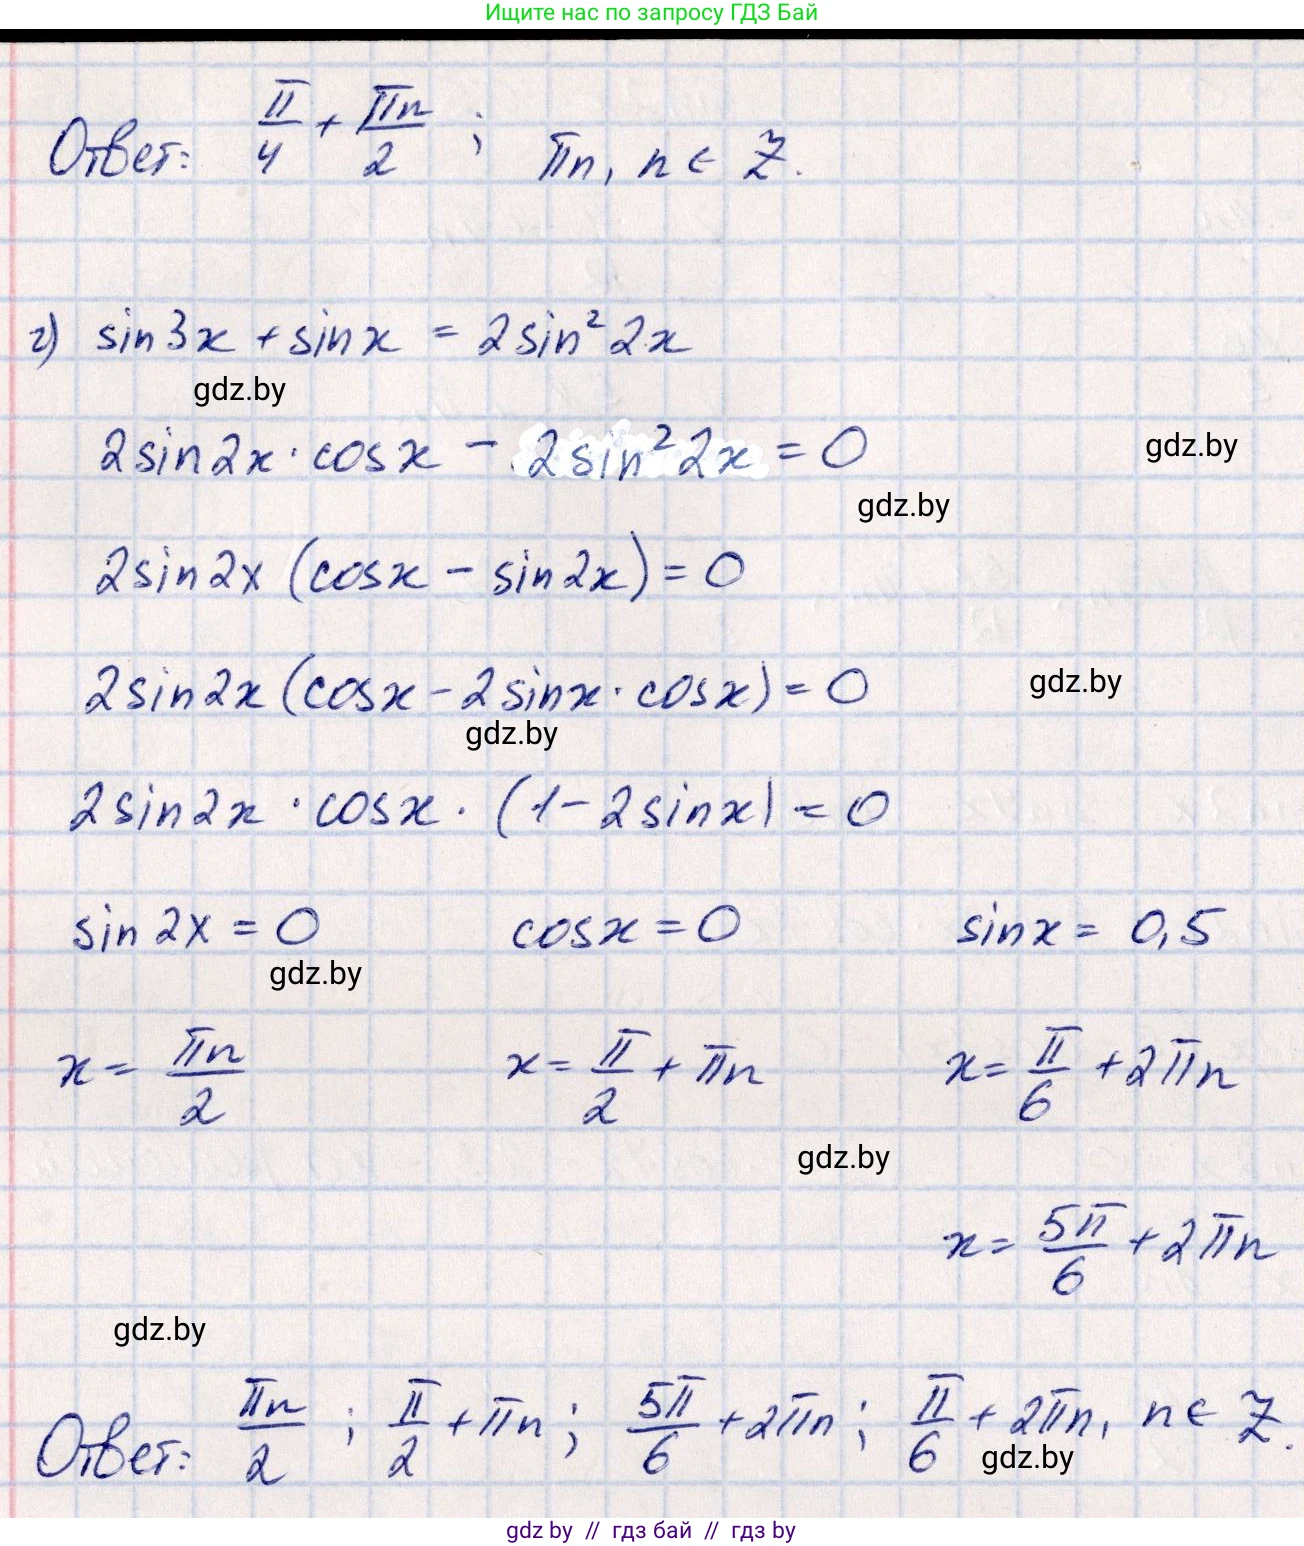 Ищите нас по запросу ГДЗ Бай
Ответ: π/4 + πn/2 ; πn, n ∈ Z.
г) sin3x + sinx = 2sin²2x
gdz.by
2sin2x · cosx − 2sin²2x = 0
gdz.by
gdz.by
2sin2x (cosx − sin2x) = 0
2sin2x (cosx − 2sinx · cosx) = 0
gdz.by
gdz.by
2sin2x · cosx · (1 − 2sinx) = 0
sin2x = 0 cosx = 0 sinx = 0,5
gdz.by
x = πn/2 x = π/2 + πn x = π/6 + 2πn
gdz.by
x = 5π/6 + 2πn
gdz.by
Ответ: πn/2 ; π/2 + πn ; 5π/6 + 2πn ; π/6 + 2πn, n ∈ Z.
gdz.by
gdz by // гдз бай // гдз by